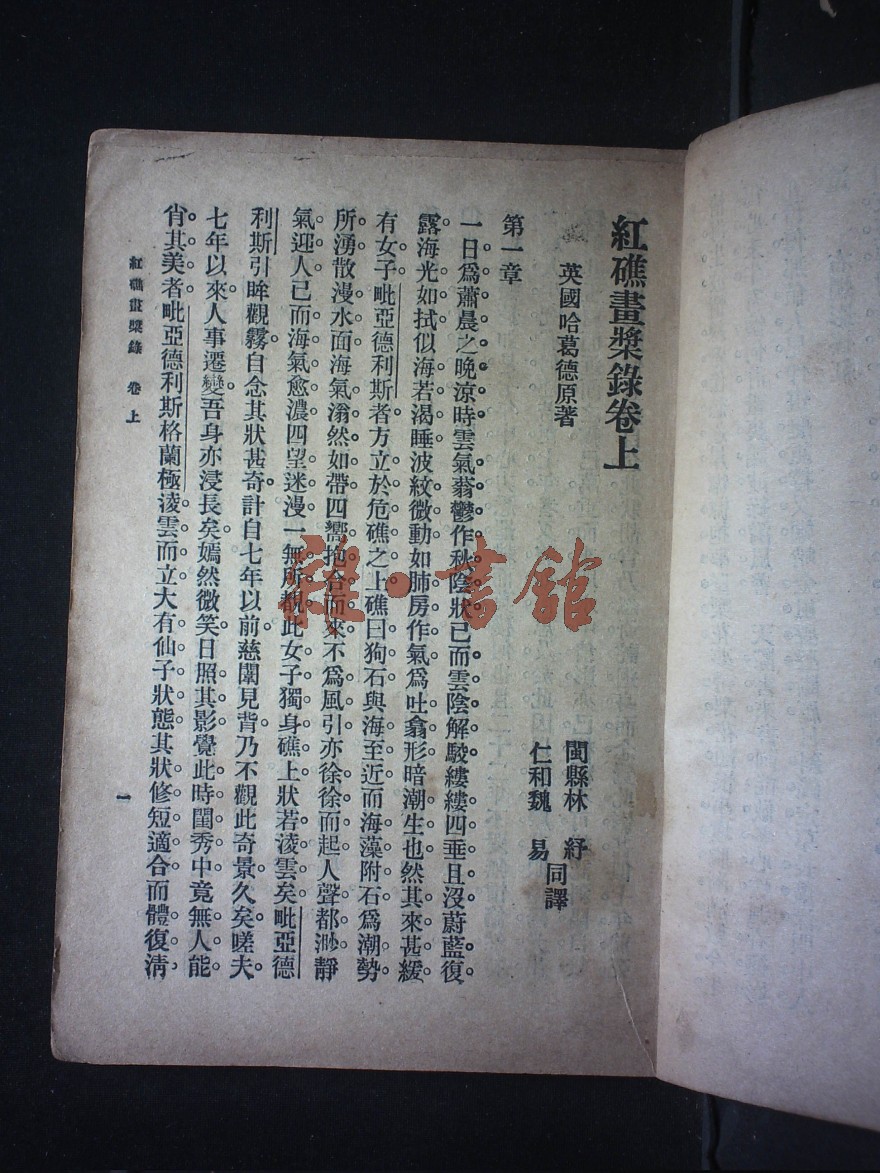 紅礁畫槳錄卷上
英國哈葛德原著
閩縣林　紓
仁和魏　易
同譯
第一章
一日爲蕭晨之晚涼時雲氣蓊鬱作秋陰狀已而雲陰解駮縷縷四垂且沒蔚藍復
露海光如拭似海若渴睡波紋微動如肺房作氣爲吐翕形暗潮生也然其來甚緩
有女子毗亞德利斯者方立於危礁之上礁曰狗石與海至近而海藻附石爲潮勢
所湧散漫水面海氣滃然如帶四嚮抱合而來不爲風引亦徐徐而起人聲都渺靜
氣迎人已而海氣愈濃四望迷漫一無所覩此女子獨身礁上狀若淩雲矣毗亞德
利斯引眸觀霧自念其狀甚奇計自七年以前慈闈見背乃不觀此奇景久矣嗟夫
七年以來人事遷變吾身亦浸長矣嫣然微笑日照其影覺此時閨秀中竟無人能
肖其美者毗亞德利斯格蘭極淩雲而立大有仙子狀態其狀修短適合而體復淸
紅礁畫槳錄　卷上
一
雜·書館